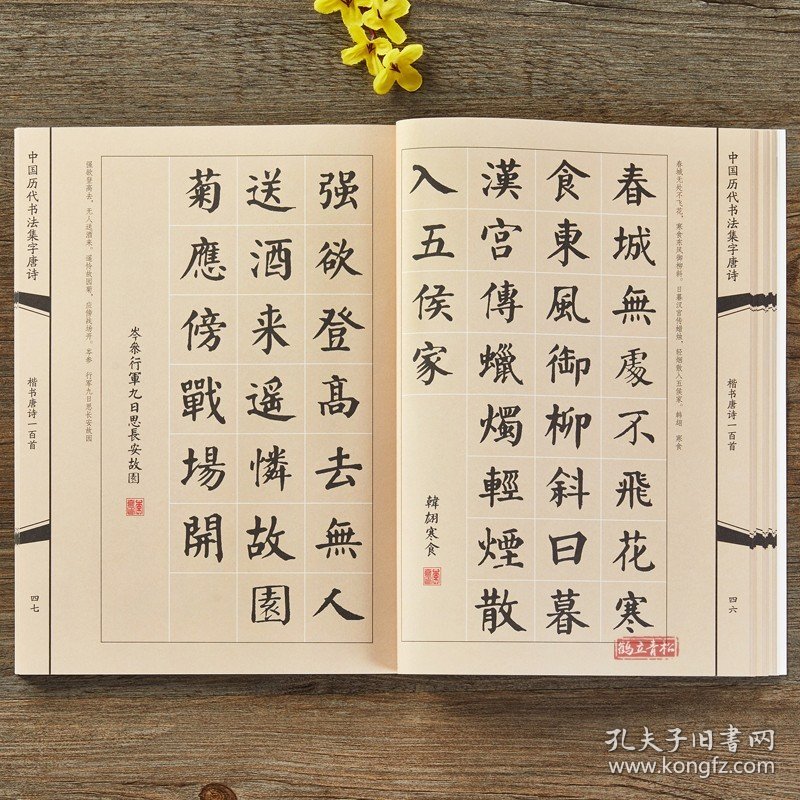 中国历代书法集字唐诗
楷书唐诗一百首
四六
春城无处不飞花，寒食东风御柳斜。日暮汉宫传蜡烛，轻烟散入五侯家。韩翃 寒食
春城無處不飛花寒
食東風御柳斜日暮
漢宮傳蠟燭輕煙散
入五侯家
韓翃寒食
强欲登高去無人
送酒来遥憐故園
菊應傍戰場開
岑參行軍九日思長安故園
强欲登高去，无人送酒来。遥怜故园菊，应傍战场开。岑参 行军九日思长安故园
中国历代书法集字唐诗
楷书唐诗一百首
四七
鹤立青松
孔夫子旧书网
www.kongfz.com